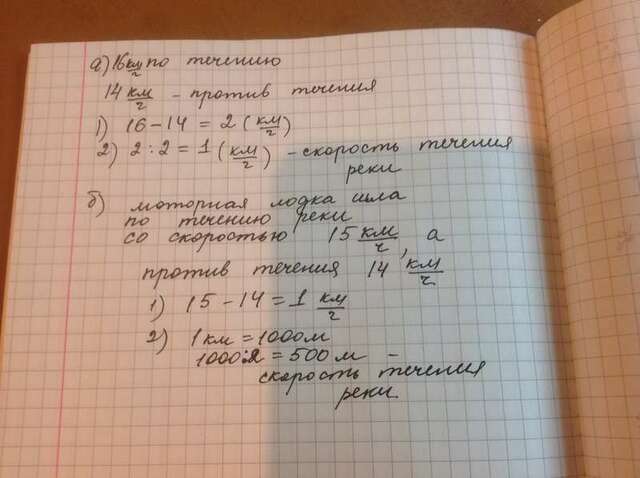 а) 16 км/ч по течению
14 км/ч – против течения
1) 16 – 14 = 2 (км/ч)
2) 2 : 2 = 1 (км/ч) – скорость течения
реки
б) моторная лодка шла
по течению реки
со скоростью 15 км/ч, а
против течения 14 км/ч
1) 15 – 14 = 1 км/ч
2) 1 км = 1000 м
1000 : 2 = 500 м –
скорость течения
реки.